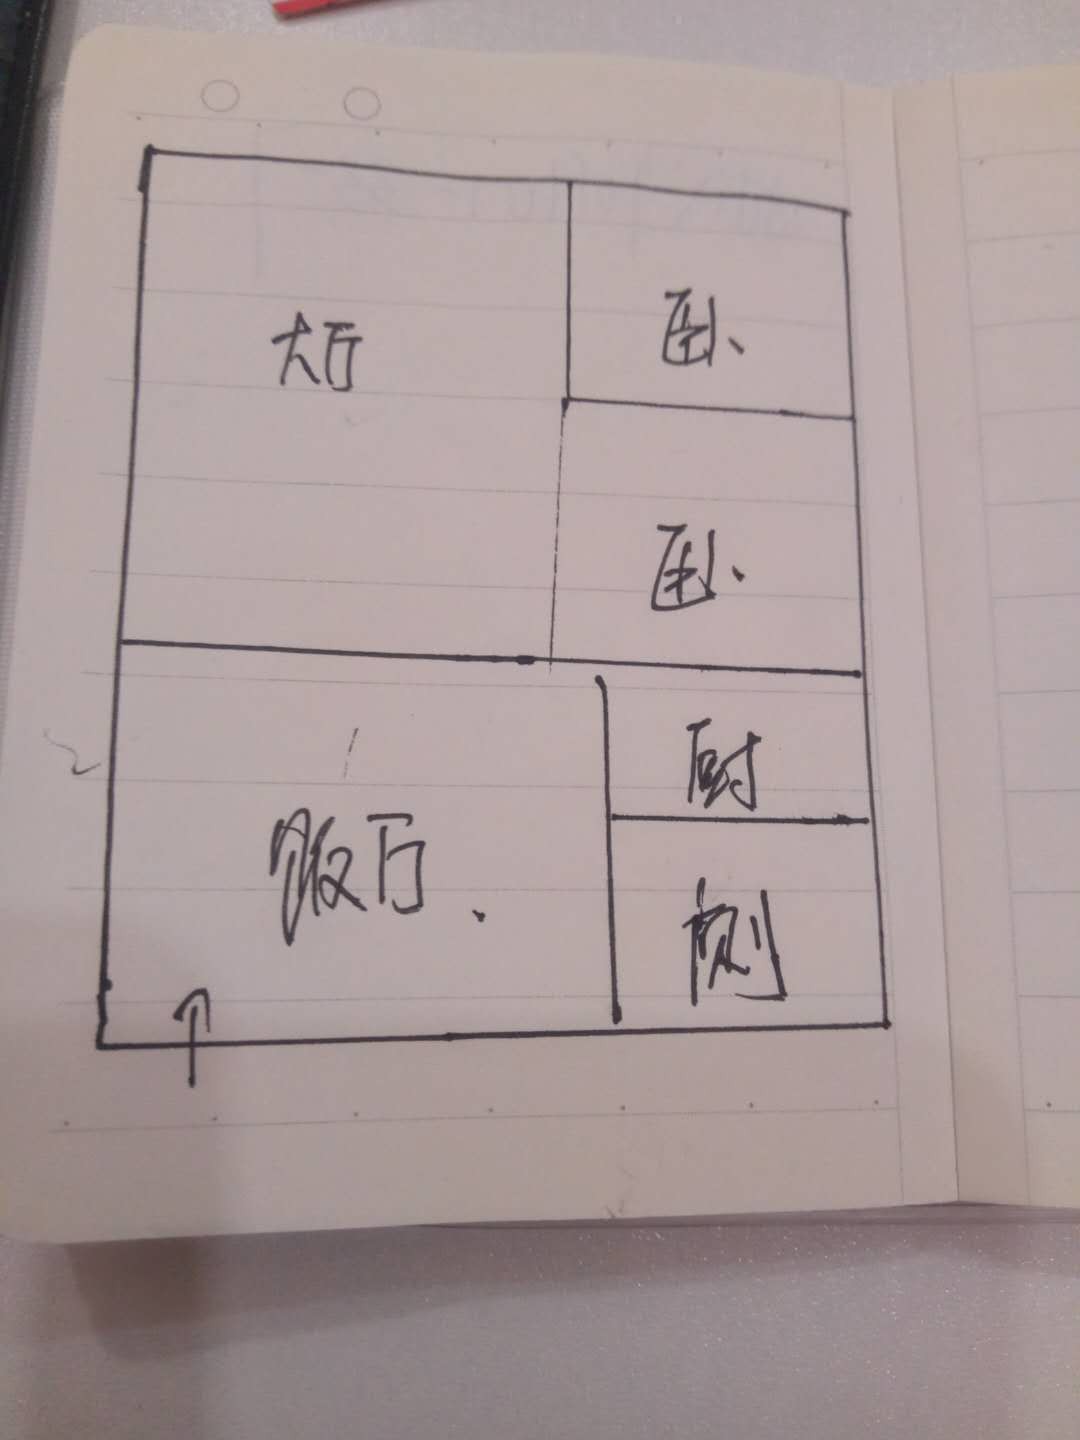 大厅
卧
卧
厨
饭厅
厕